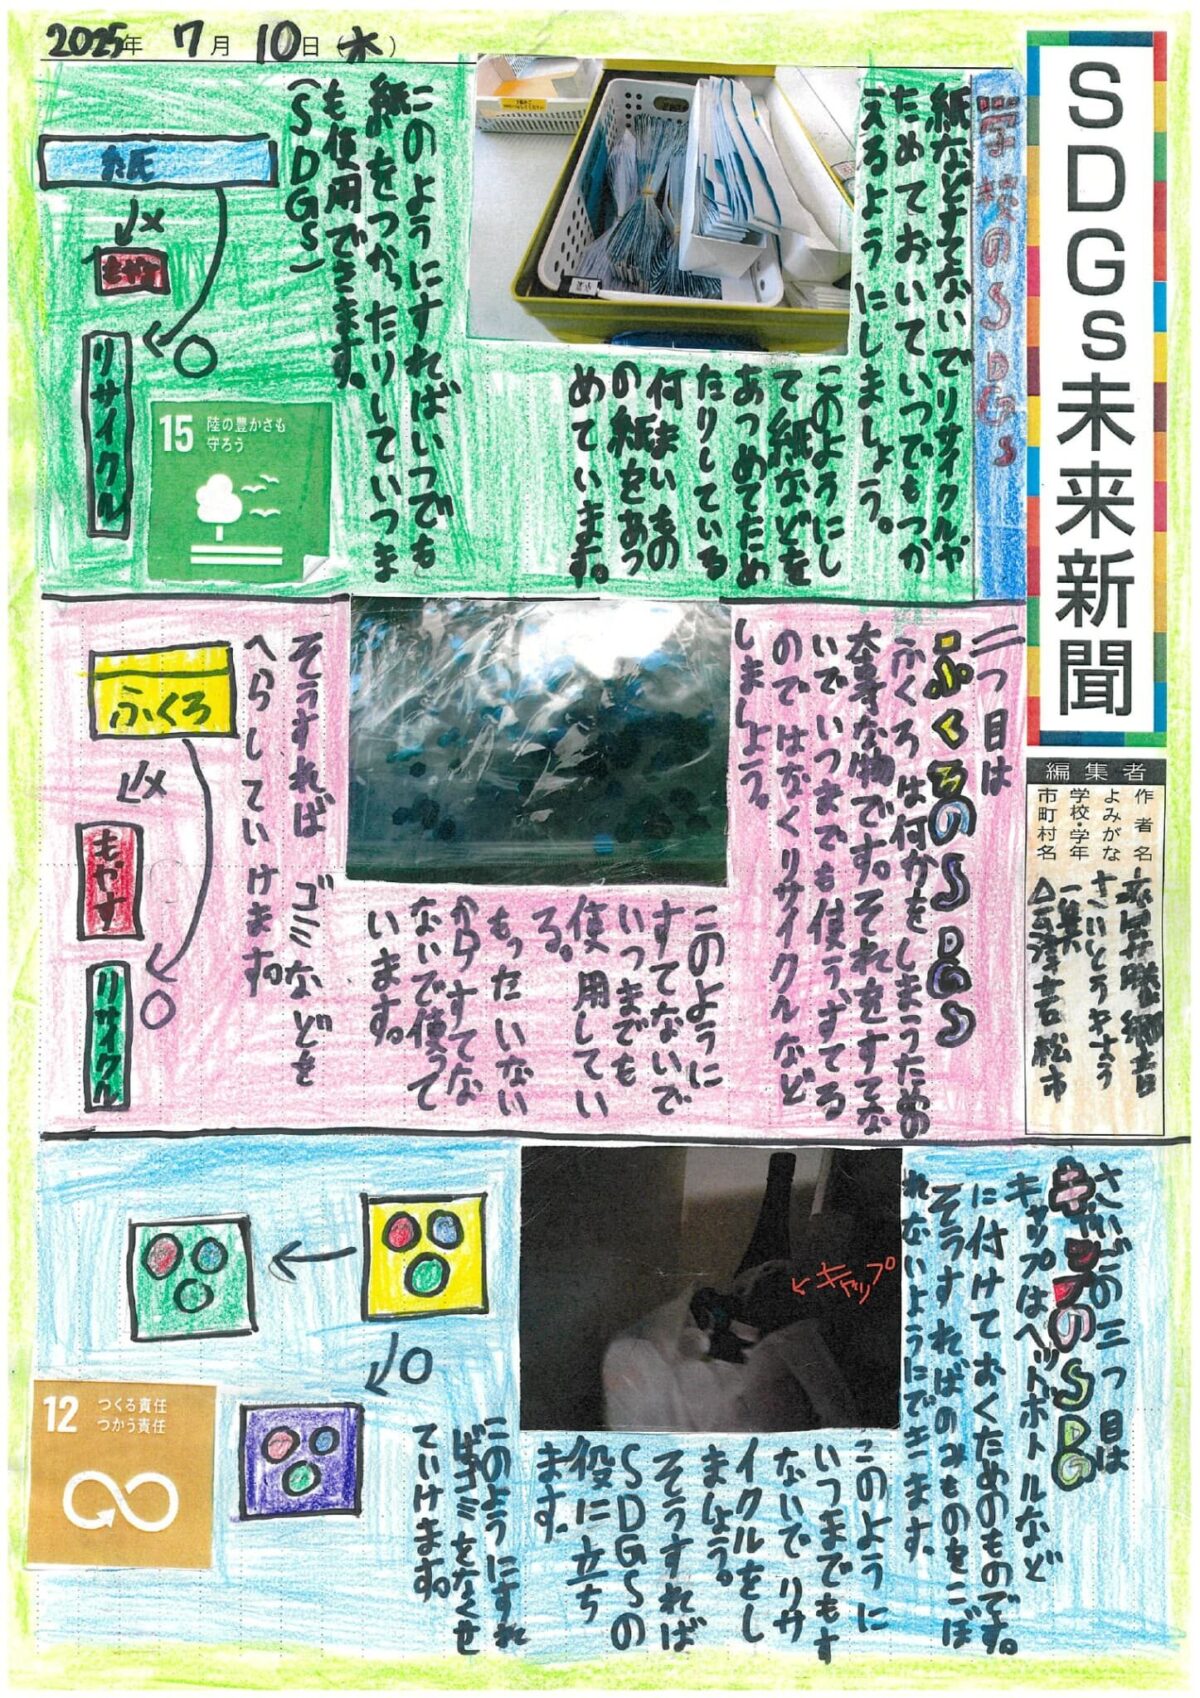 SDGs未来新聞
2025年 7月 10日(水)
編集者
作者名
よみがな さいとうやまと
学校・学年
市町村名 会津若松市
学校のSDGs
紙などすてないでリサイクルや
ためておいていつでもつか
えるようにしましょう。
このようにし
て紙などを
あつめてため
たりしている
何まいもの
の紙をあつ
めています。
このようにすればいつでも
紙をつかったりしていつま
も使用できます。
(SDGs)
紙
もやす
リサイクル
15 陸の豊かさも
守ろう
二つ目は
ふくろのSDGs
ふくろは何かをしまうための
大事な物です。それをすてな
いでいつまでも使う、すてる
のではなくリサイクルなど
しましょう。
このように
すてないで
いつまでも
使用してい
る。
もったいない
からすてな
ないで使って
います。
そうすれば ゴミなどを
へらしていけます。
ふくろ
もやす
リサイクル
さいごの三つ目は
キャップのSDG
キャップはペットボトルなど
に付けておくためのものです。
そうすればのみものをこぼ
れないようにできます。
キャップ
このように
いつまでもす
ないで リサ
イクルをし
ましょう。
そうすれば
SDGSの
役に立ち
ます。
このようにすれ
ばゴミをなくせ
ていけます。
12 つくる責任
つかう責任